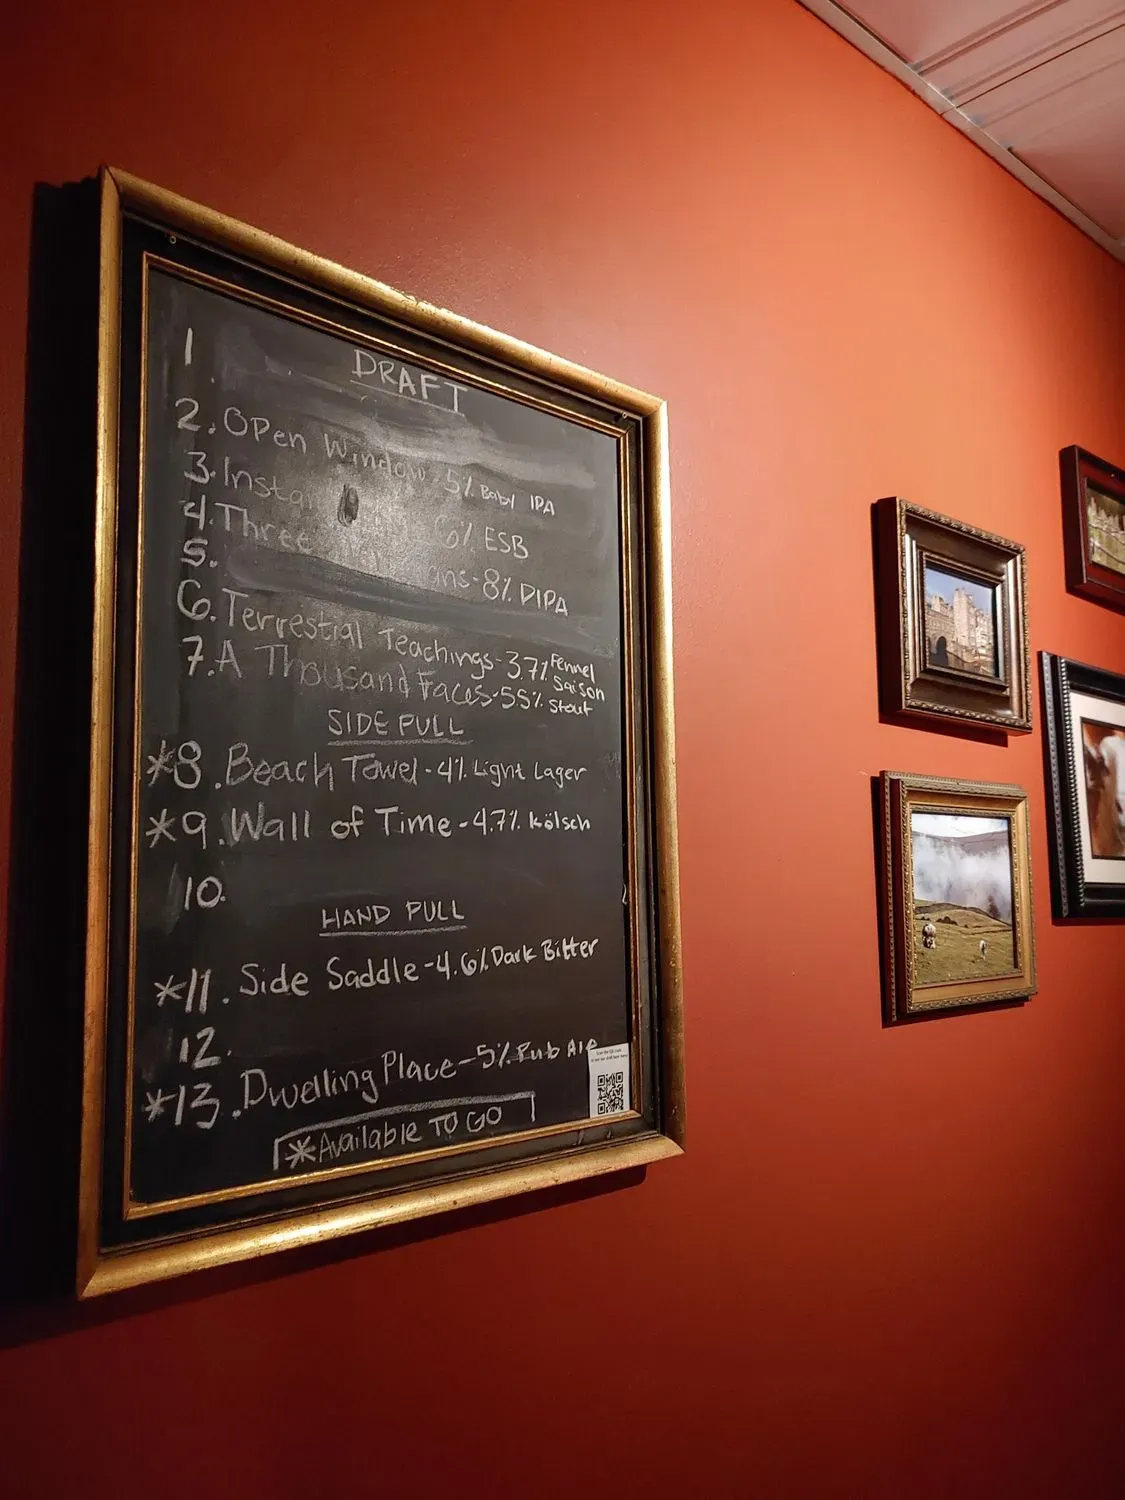 DRAFT
1.
2. Open Window 5% Baby IPA
3. 6% ESB
4. Three 8% DIPA
5.
6. Terrestial Teachings - 3.7% Fennel Saison
7. A Thousand Faces - 5.5% Stout
SIDE PULL
*8. Beach Towel - 4% Light Lager
*9. Wall of Time - 4.7% Kölsch
10.
HAND PULL
*11. Side Saddle - 4.6% Dark Bitter
12.
*13. Dwelling Place - 5% Pub Ale
*Available TO GO